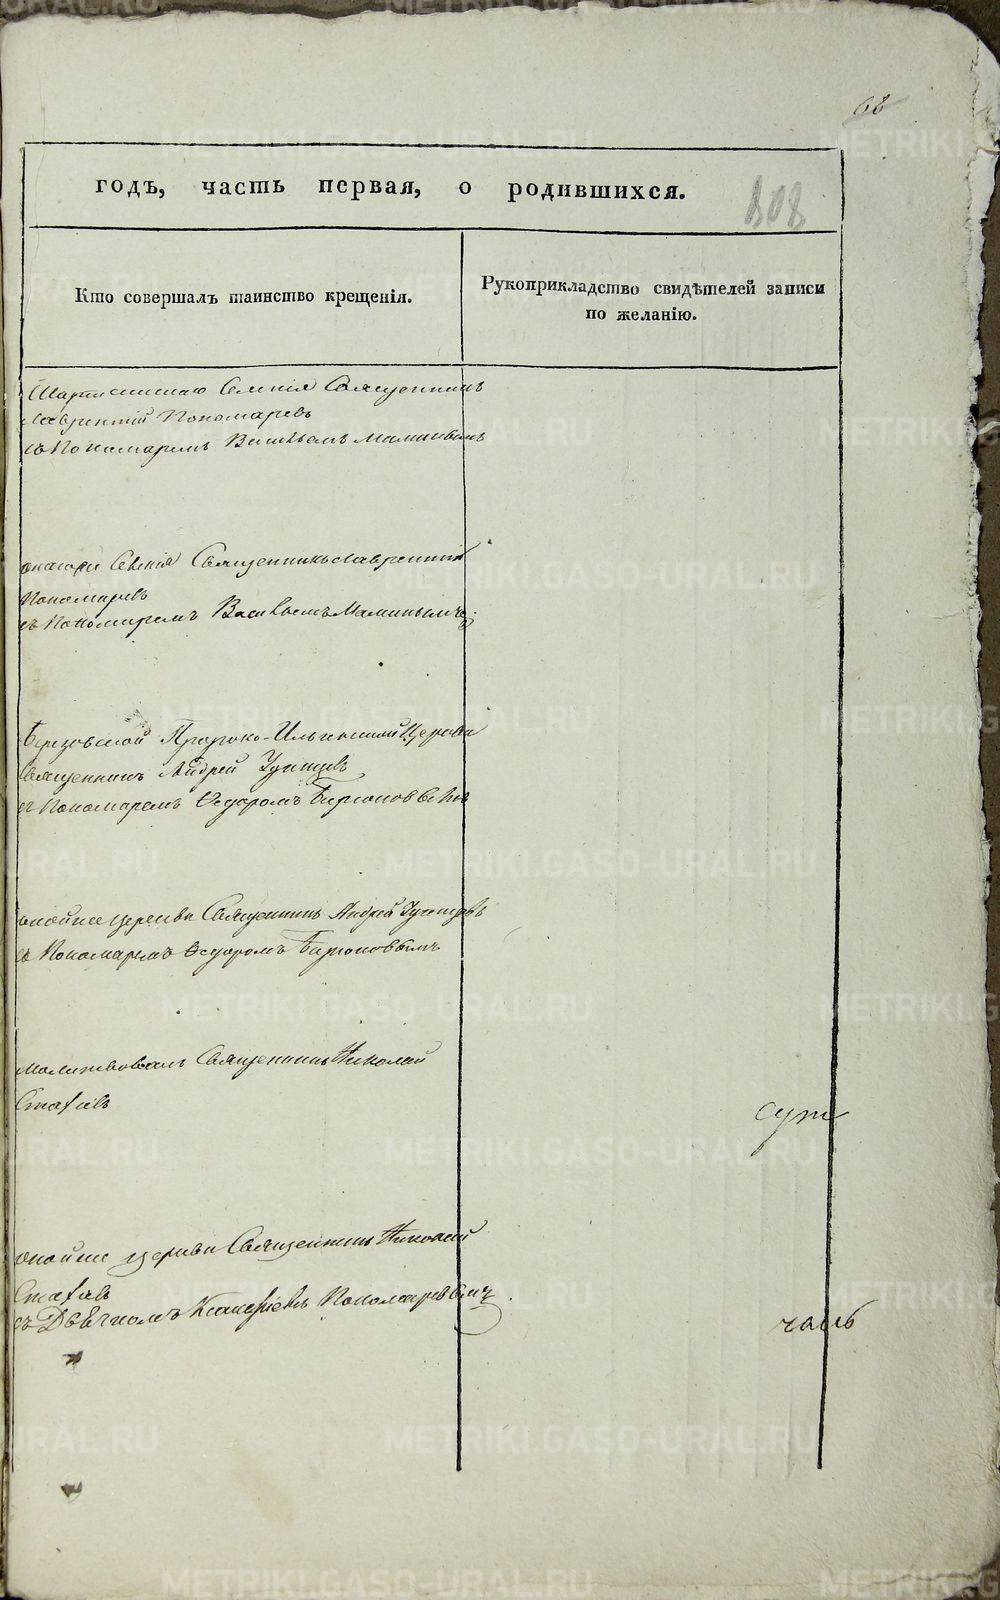 68
годъ, часть первая, о родившихся.
808
Кто совершалъ таинство крещенія.
Рукоприкладство свидѣтелей записи
по желанію.
Селенія Священникъ
Лаврентій Пономаревъ
съ Пономаремъ Васильемъ Маминымъ
онагоже Селенія Священникъ Лаврентій
Пономаревъ
съ Пономаремъ Васильемъ Маминымъ
Березовской Пророко-Ильинской Церкви
Священникъ Андрей
съ Пономаремъ Ѳедоромъ Бирюковымъ
онойже церкви Священникъ Андрей
съ Пономаремъ Ѳедоромъ Бирюковымъ
молитвовалъ Священникъ Николай
Стахіевъ
онойже церкви Священникъ Николай
Стахіевъ
съ Дьячкомъ Пономаревымъ
часъ
METRIKI.GASO-URAL.RU